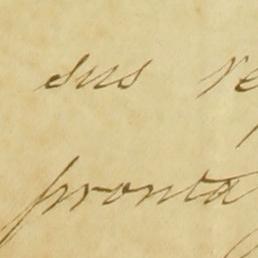 sus re
pronta